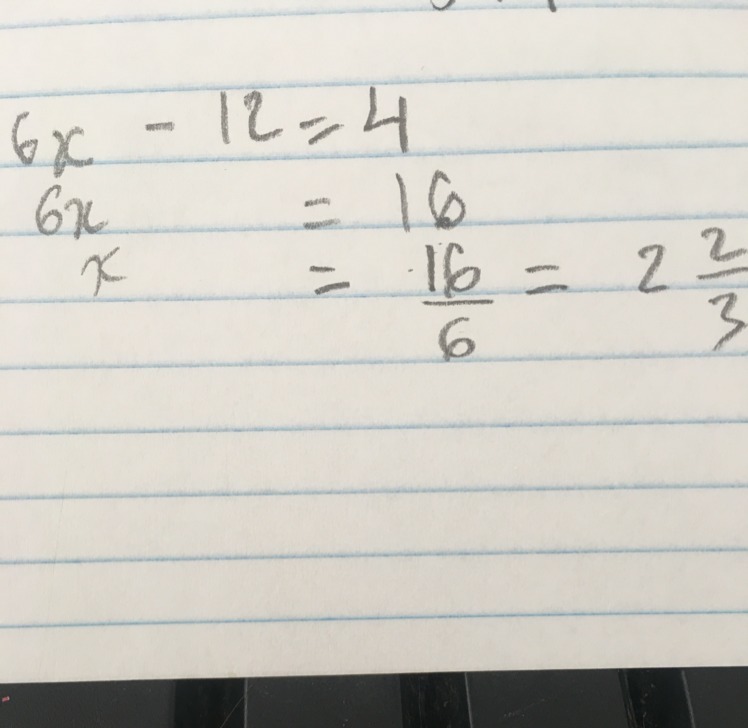 6x - 12 = 4
6x = 16
x = 16/6 = 2 2/3